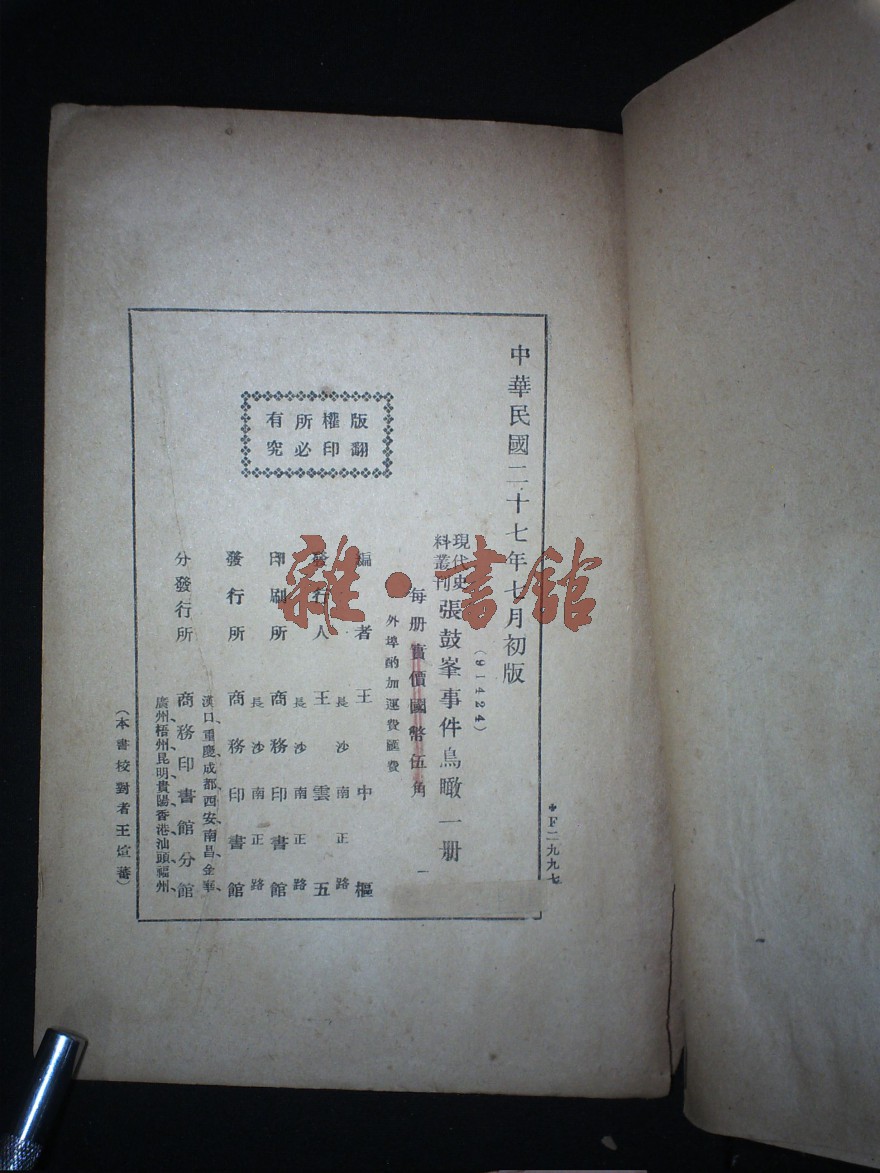 中華民國二十七年七月初版
＊F二九九七
(91424)
現代史料叢刊 張鼓峯事件鳥瞰一册
每册實價國幣伍角
外埠酌加運費匯費
版權所有
翻印必究
編者 王中樞
發行人 王雲五
長沙南正路
印刷所 商務印書館
長沙南正路
發行所 商務印書館
長沙南正路
分發行所 商務印書館分館
漢口、重慶、成都、西安、南昌、金華、
廣州、梧州、昆明、貴陽、香港、汕頭、福州、
(本書校對者王煊蕃)
雜·書館